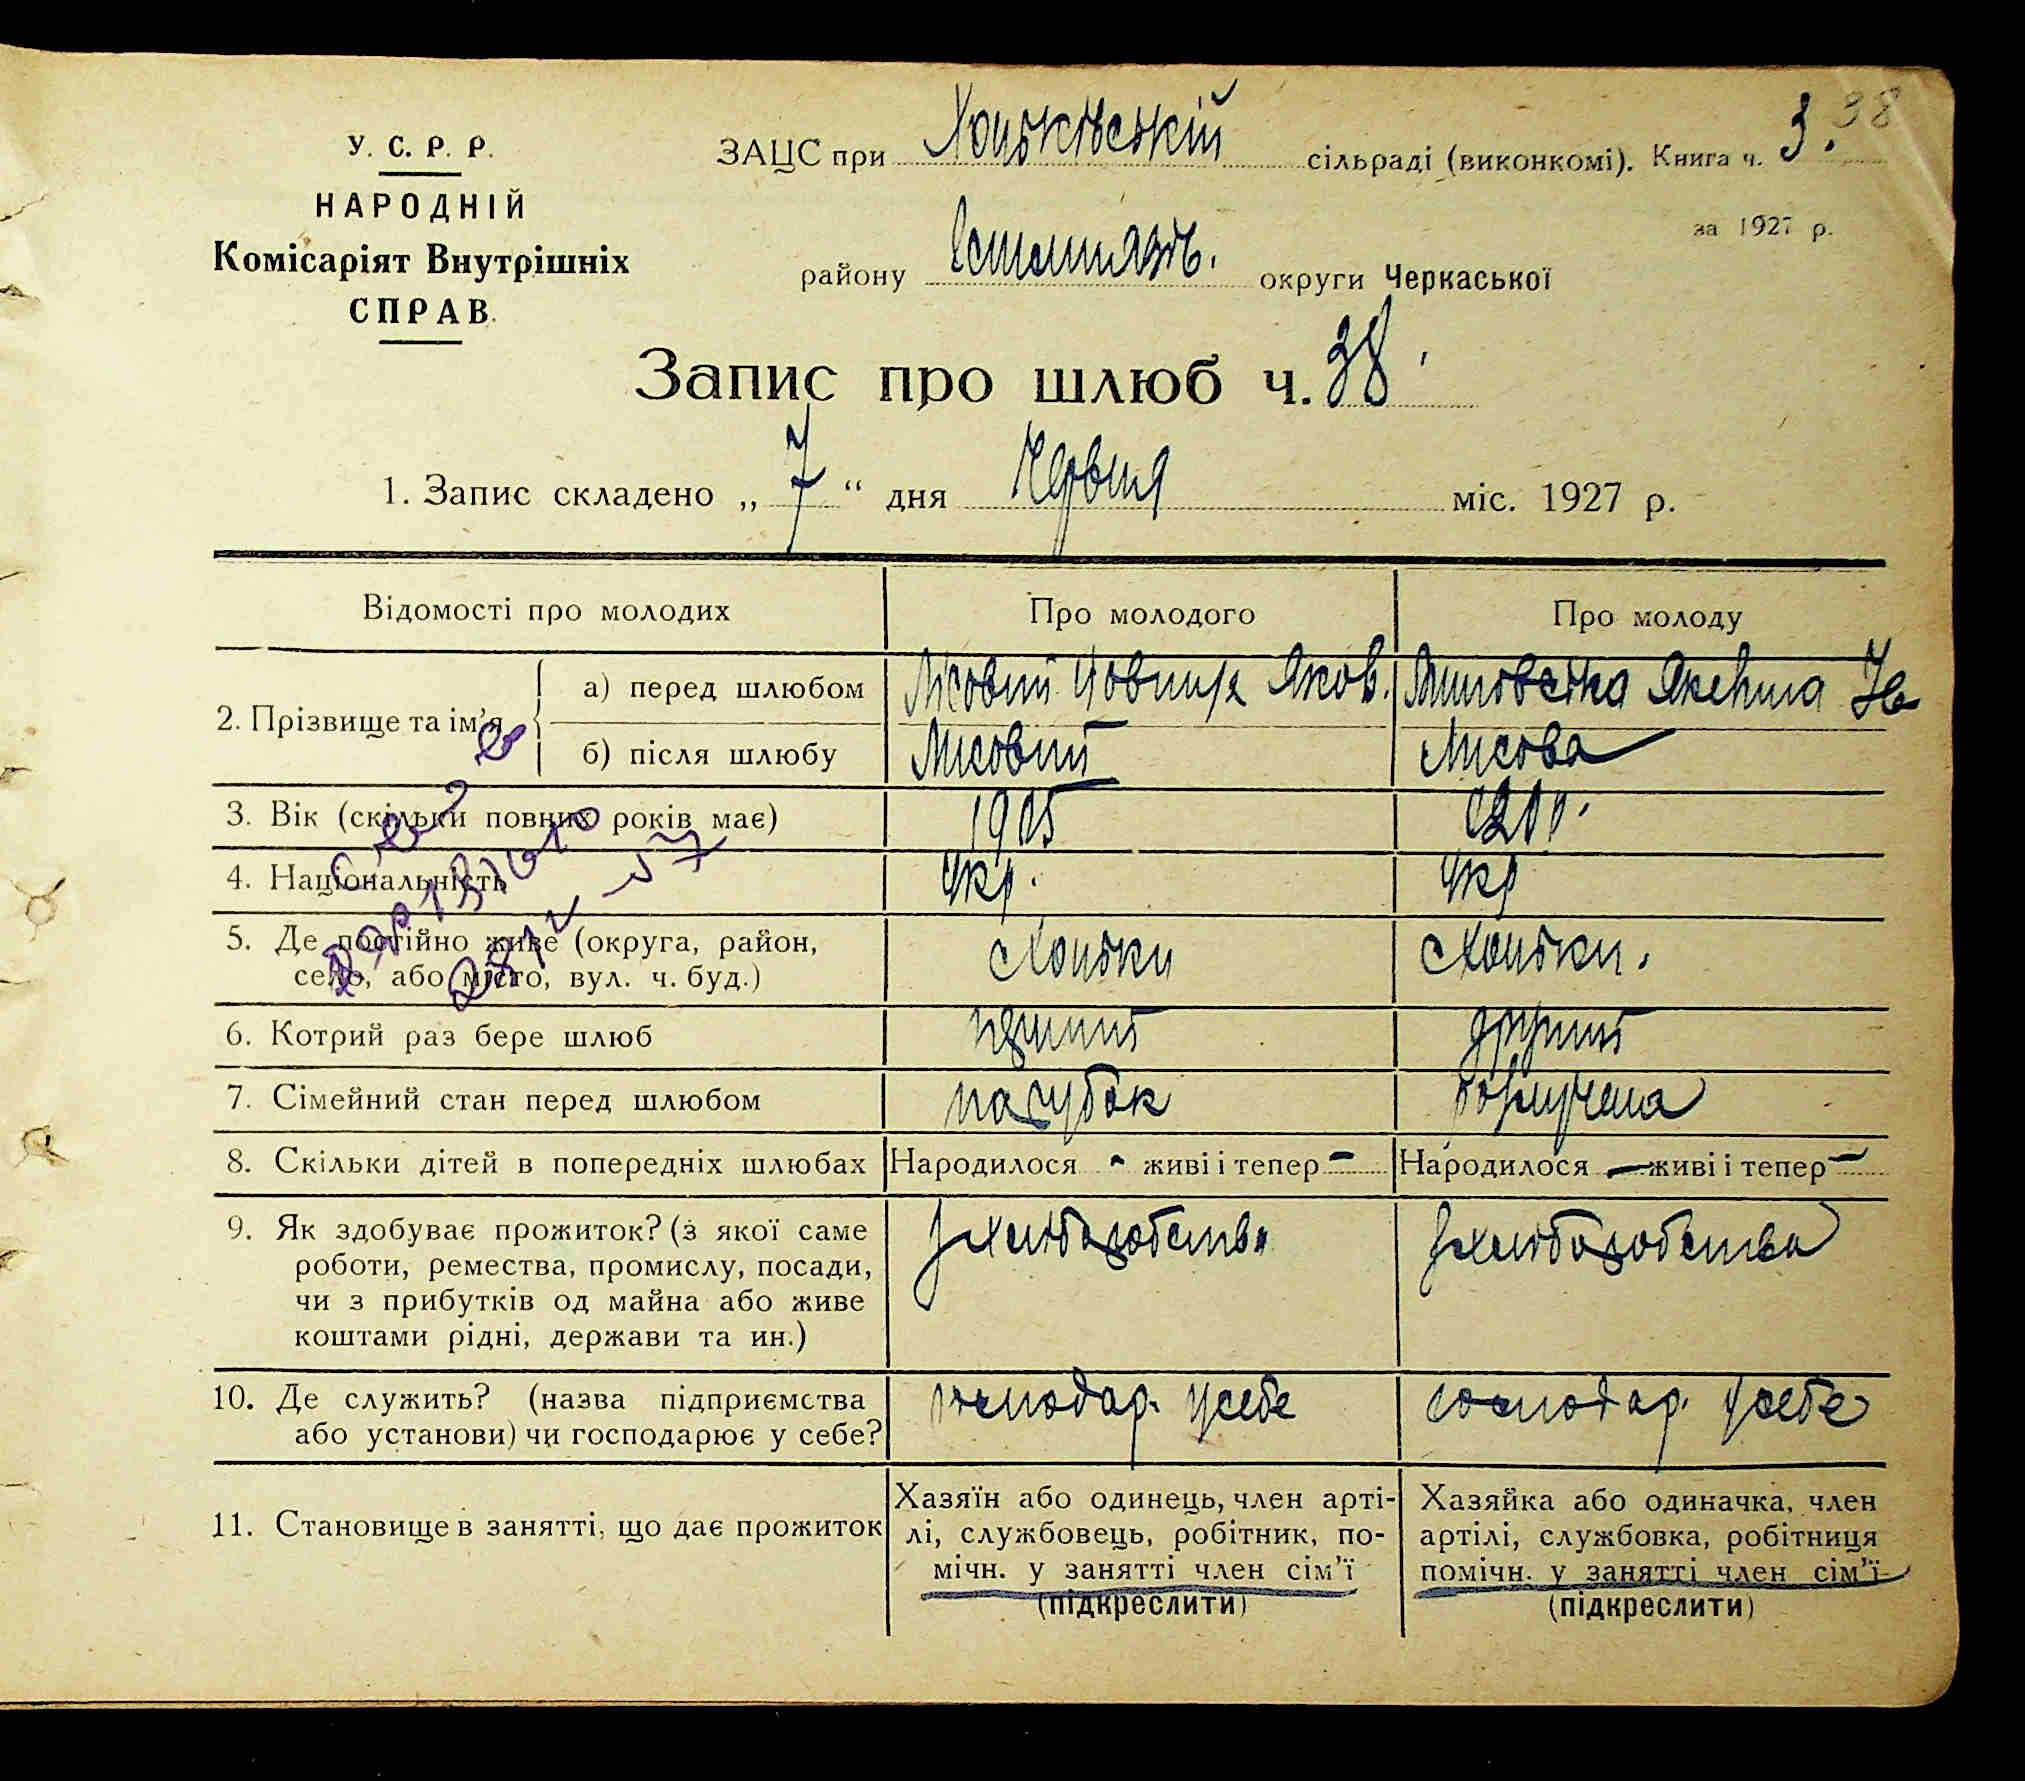 38
У. С. Р. Р.
НАРОДНІЙ
Комісаріят Внутрішніх
СПРАВ.
ЗАЦС при Хоцьківській сільраді (виконкомі). Книга ч. 3.
за 1927 р.
району округи Черкаської
Запис про шлюб ч. 38
1. Запис складено „ 7 “ дня Червня міс. 1927 р.
Відомості про молодих Про молодого Про молоду
2. Прізвище та ім'я
а) перед шлюбом Лисовий Яков.
б) після шлюбу Лисовий Лисова
3. Вік (скільки повних років має) 1905 20 р.
4. Національність Укр. Укр
5. Де постійно живе (округа, район,
село, або місто, вул. ч. буд.) с Хоцьки с Хоцьки.
6. Котрий раз бере шлюб перший другий
7. Сімейний стан перед шлюбом парубок
8. Скільки дітей в попередніх шлюбах Народилося - живі і тепер - Народилося - живі і тепер -
9. Як здобуває прожиток? (з якої саме
роботи, ремества, промислу, посади,
чи з прибутків од майна або живе
коштами рідні, держави та ин.)
З хліборобства З хліборобства
10. Де служить? (назва підприємства
або установи) чи господарює у себе?
господар. у себе господар. у себе
11. Становище в занятті, що дає прожиток
Хазяїн або одинець, член арті-
лі, службовець, робітник, по-
мічн. у занятті член сім'ї
(підкреслити)
Хазяйка або одиначка, член
артілі, службовка, робітниця
помічн. у занятті член сім'ї
(підкреслити)